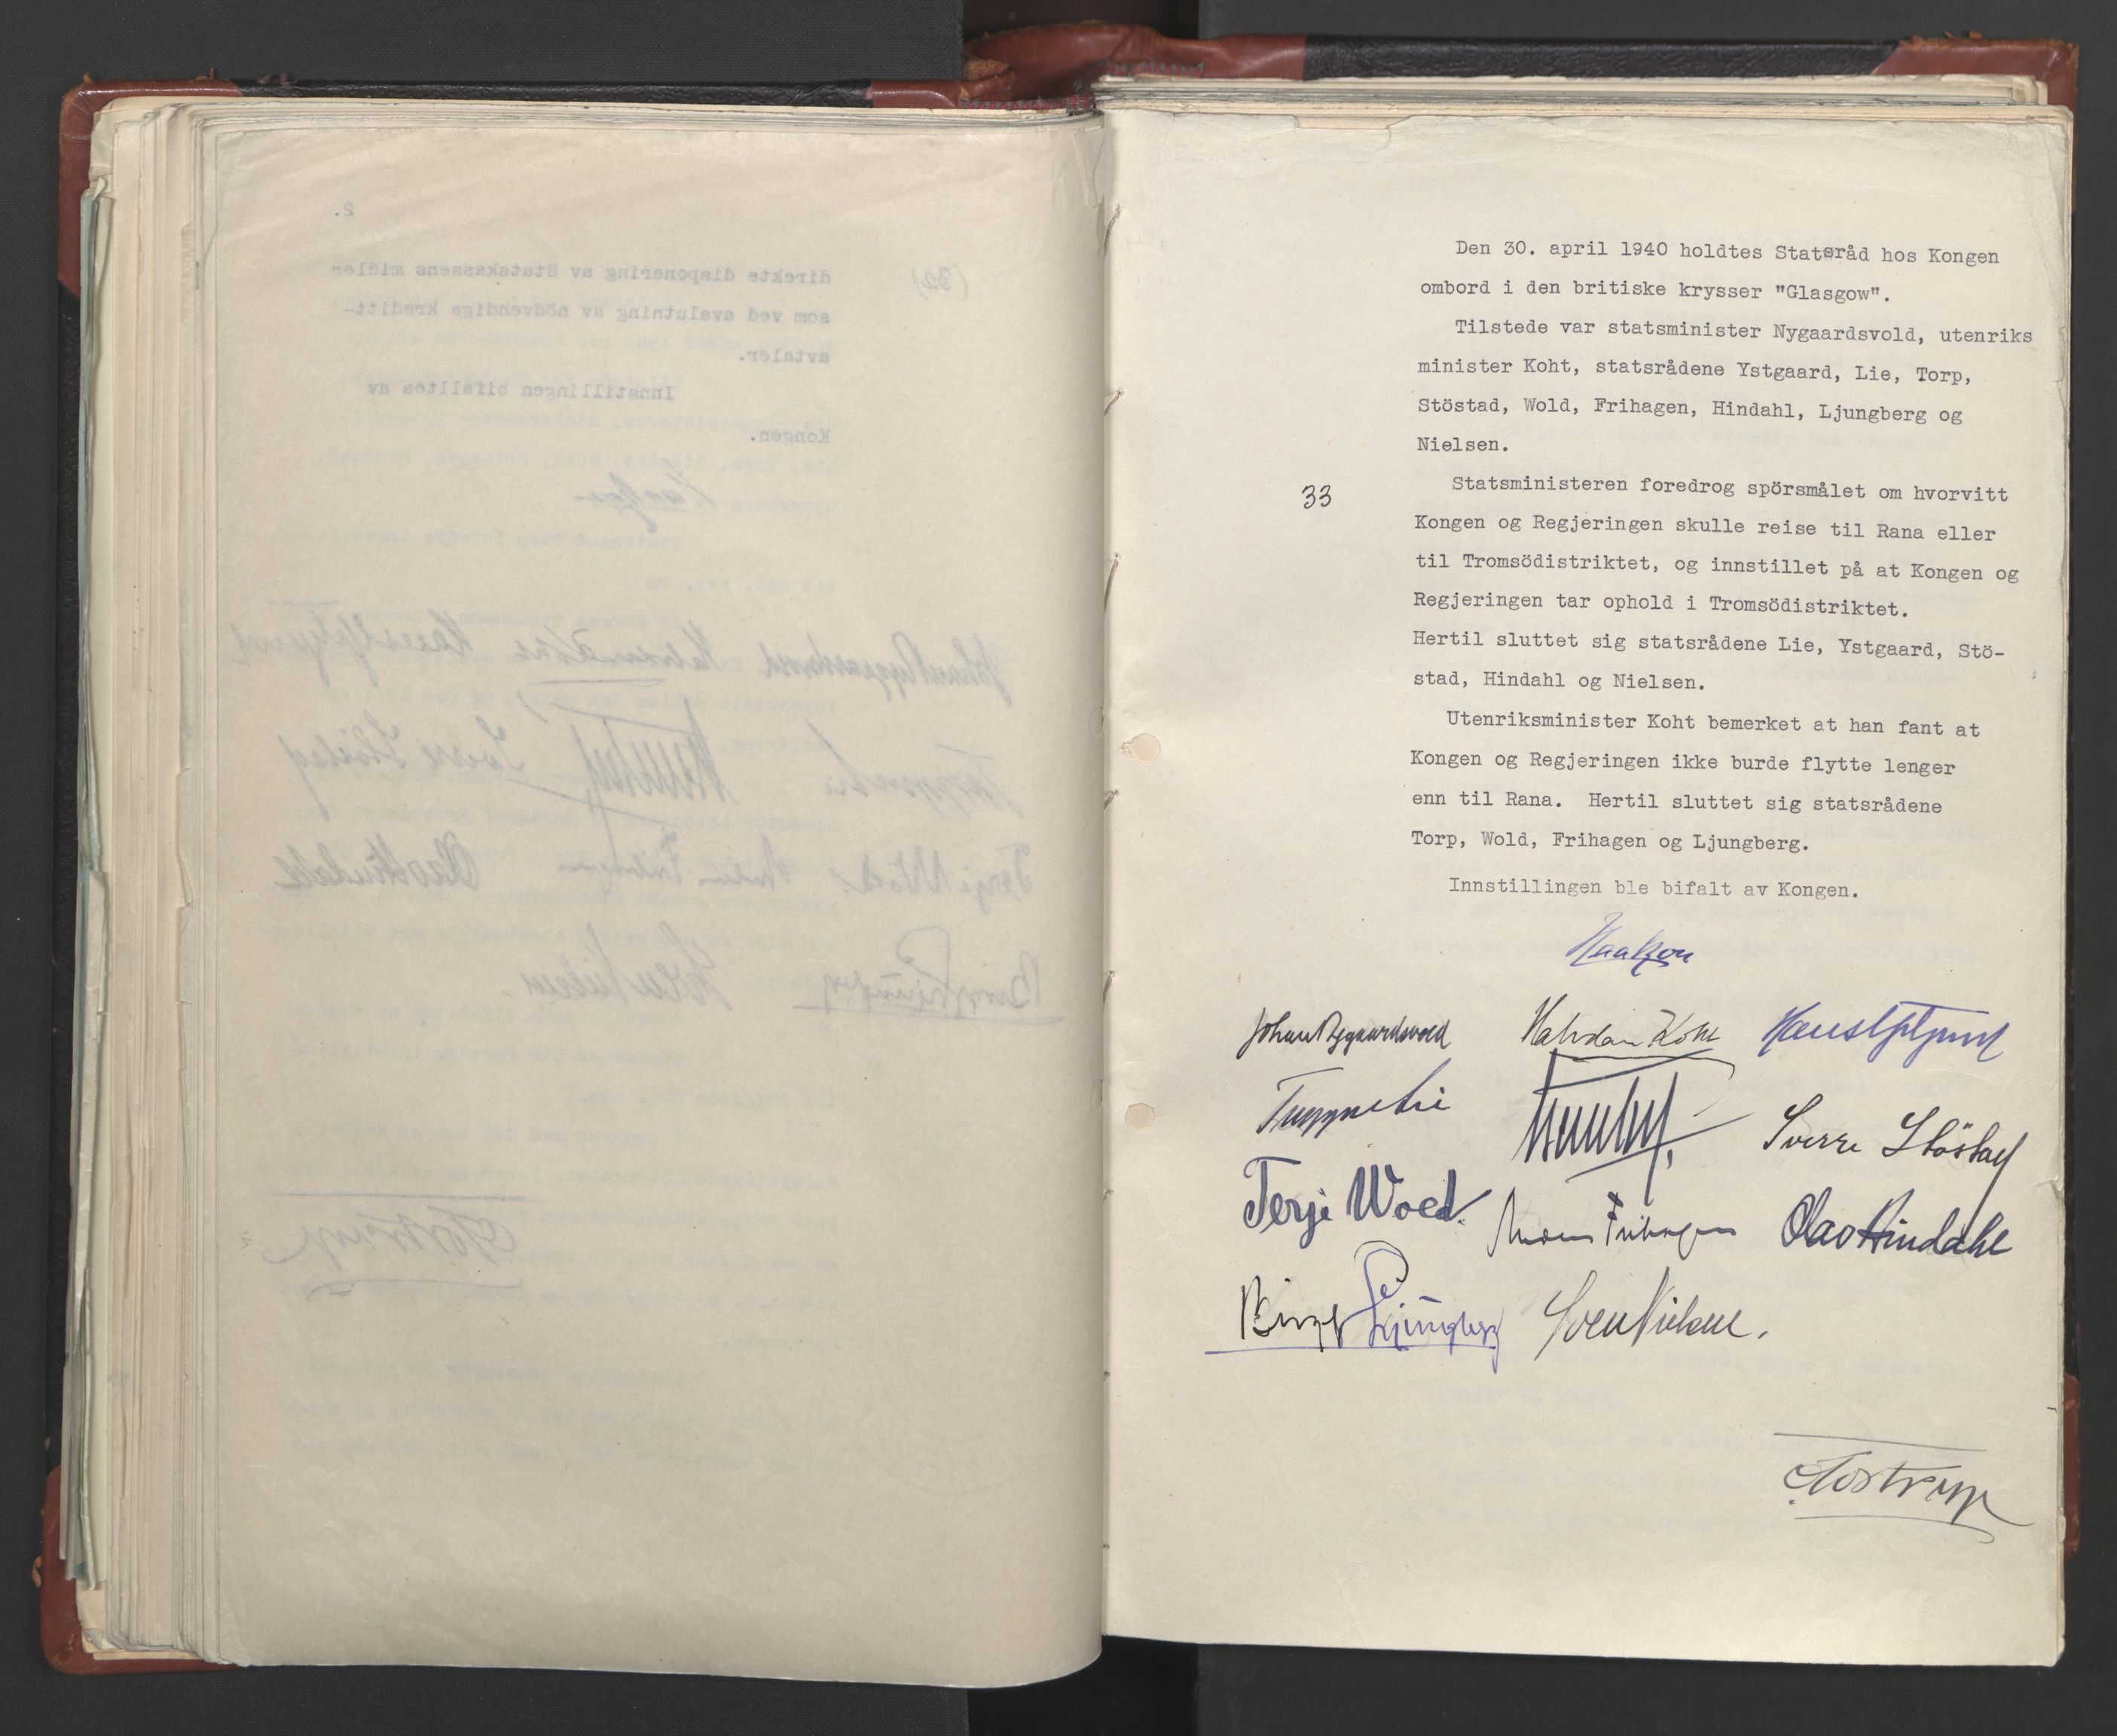 2.
(32)
direkte disponering av Statskassens midler
som ved avslutning av nödvendige kreditt-
avtaler.
Innstillingen bifalltes av
Kongen.
Haakon
Johan Nygaardsvold Halvdan Koht
Trygve Lie Sverre Støstad
Terje Wold Anders Frihagen Olav Hindahl
Birger Ljungberg Sven Nielsen.
Tostrup
Den 30. april 1940 holdtes Statsråd hos Kongen
ombord i den britiske krysser "Glasgow".
Tilstede var statsminister Nygaardsvold, utenriks
minister Koht, statsrådene Ystgaard, Lie, Torp,
Stöstad, Wold, Frihagen, Hindahl, Ljungberg og
Nielsen.
33
Statsministeren foredrog spörsmålet om hvorvitt
Kongen og Regjeringen skulle reise til Rana eller
til Tromsödistriktet, og innstillet på at Kongen og
Regjeringen tar ophold i Tromsödistriktet.
Hertil sluttet sig statsrådene Lie, Ystgaard, Stö-
stad, Hindahl og Nielsen.
Utenriksminister Koht bemerket at han fant at
Kongen og Regjeringen ikke burde flytte lenger
enn til Rana. Hertil sluttet sig statsrådene
Torp, Wold, Frihagen og Ljungberg.
Innstillingen ble bifalt av Kongen.
Haakon
Johan Nygaardsvold Halvdan Koht
Trygve Lie Sverre Stöstad
Terje Wold. Anders Frihagen Olav Hindahl
Birger Ljungberg Sven Nielsen.
Tostrup